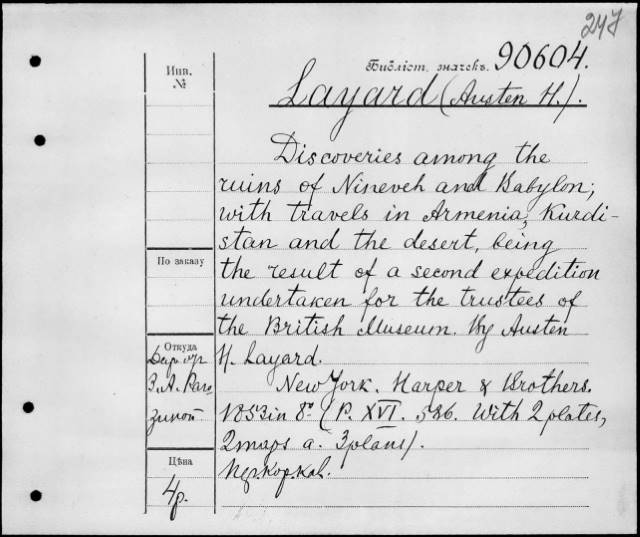 247
Библіот. значекъ. 90604.
Layard (Austen H.).
Инв.
№
Discoveries among the
ruins of Nineveh and Babylon;
with travels in Armenia, Kurdi-
stan and the desert, being
the result of a second expedition
undertaken for the trustees of
the British Museum. By Austen
H. Layard.
New York. Harper & Brothers.
1853 in 8º (P. XVI. 586. With 2 plates,
2 maps a. 3 plans).
По заказу
Откуда
З. А. Раго
зиной
Цѣна
4 р.